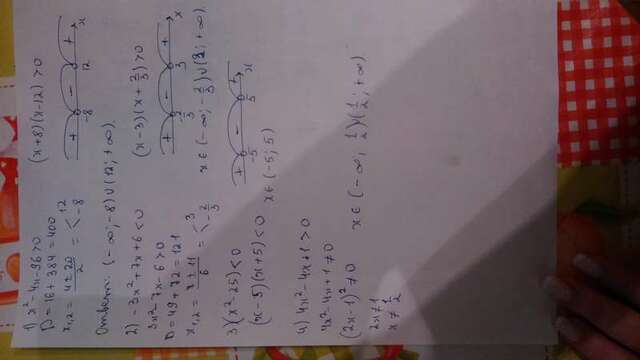 1) x² - 4x - 96 > 0
D = 16 + 384 = 400
x₁,₂ = (4 ± 20)/2 = < 12 -8
(x+8)(x-12) > 0
+ - + x
-8 12
Ответ: (-∞; -8) ∪ (12; +∞).
2) -3x² + 7x + 6 < 0
3x² - 7x - 6 > 0
D = 49 + 72 = 121
x₁,₂ = (7 ± 11)/6 = < 3 -2/3
(x-3)(x+2/3) > 0
+ - + x
-2/3 3
x ∈ (-∞; -2/3) ∪ (3; +∞)
3) (x² - 25) < 0
(x-5)(x+5) < 0
+ - + x
-5 5
x ∈ (-5; 5)
4) 4x² - 4x + 1 > 0
4x² - 4x + 1 ≠ 0
(2x-1)² ≠ 0
2x ≠ 1
x ≠ 1/2
x ∈ (-∞; 1/2) ∪ (1/2; +∞)